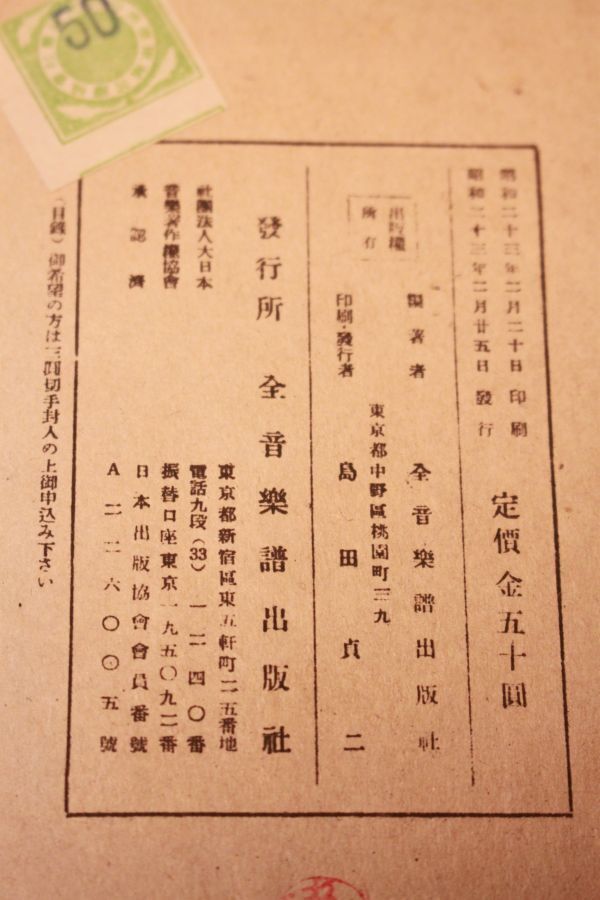 昭和二十三年二月二十日 印刷
昭和二十三年二月廿五日 發行
定價金五十圓
出版權
所有
編著者 全音樂譜出版社
東京都中野區桃園町三九
印刷・發行者 島田貞二
發行所 全音樂譜出版社
東京都新宿區東五軒町二五番地
電話九段(33)一二四〇番
振替口座東京一九五〇九二番
日本出版協會會員番號
A二一六〇〇五號
社團法人大日本
音樂著作權協會
承認濟
(目錄)御希望の方は三圓切手封入の上御申込み下さい
50